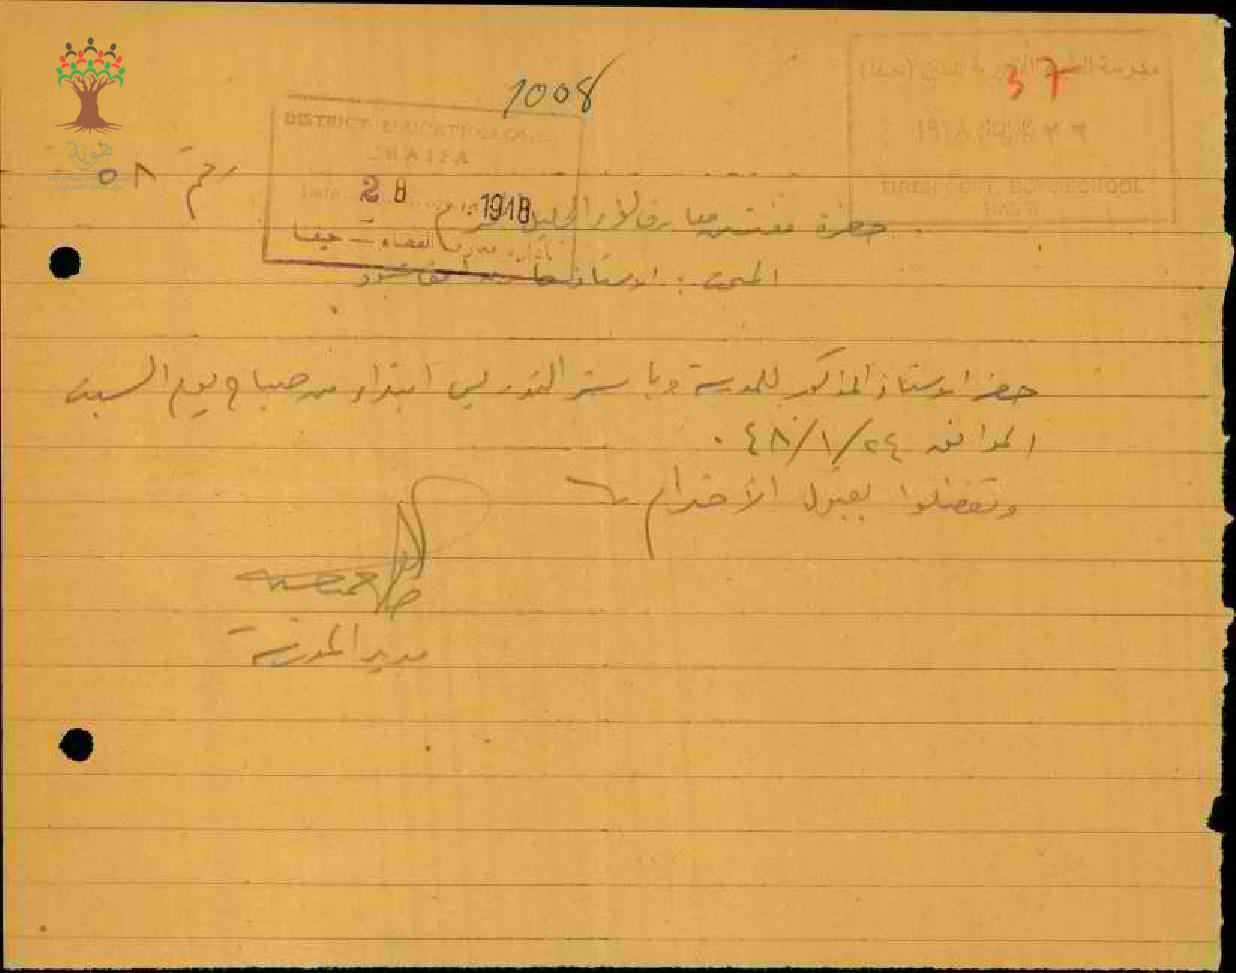 1008
37
مدرسة
١٩٤٨
TIREH GOVT. BOYS SCHOOL
HAIFA
DISTRICT EDUCATION OFFICE
HAIFA
28 1948
معارف القضاء – حيفا
هوية
رقم ٥٨
حضرة مفتش معارف لواء الجليل المحترم
المبحث : الاستاذ
حضر الاستاذ المذكور للمدرسة وباشر التدريس ابتداء من صباح يوم السبت
الموافق ٢٤/١/٤٨ .
وتفضلوا بقبول الاحترام
مدير المدرسة